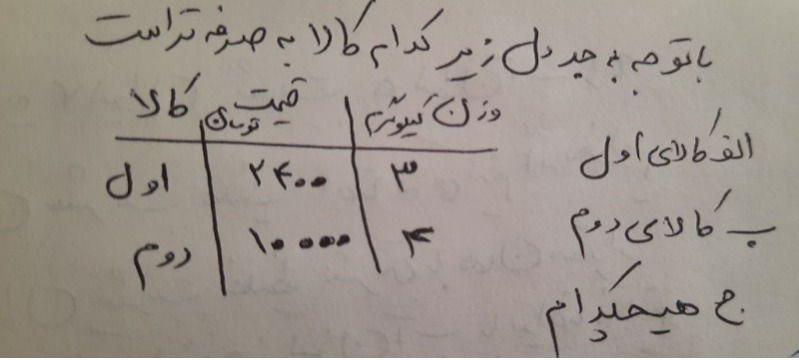 با توجه به جدول زیر کدام کالا به صرفه تر است
کالا | قیمت تومان | وزن کیلوگرم
اول | ۲۴۰۰ | ۳
دوم | ۱۰۰۰۰ | ۴
الف کالای اول
ب کالای دوم
ج هیچکدام